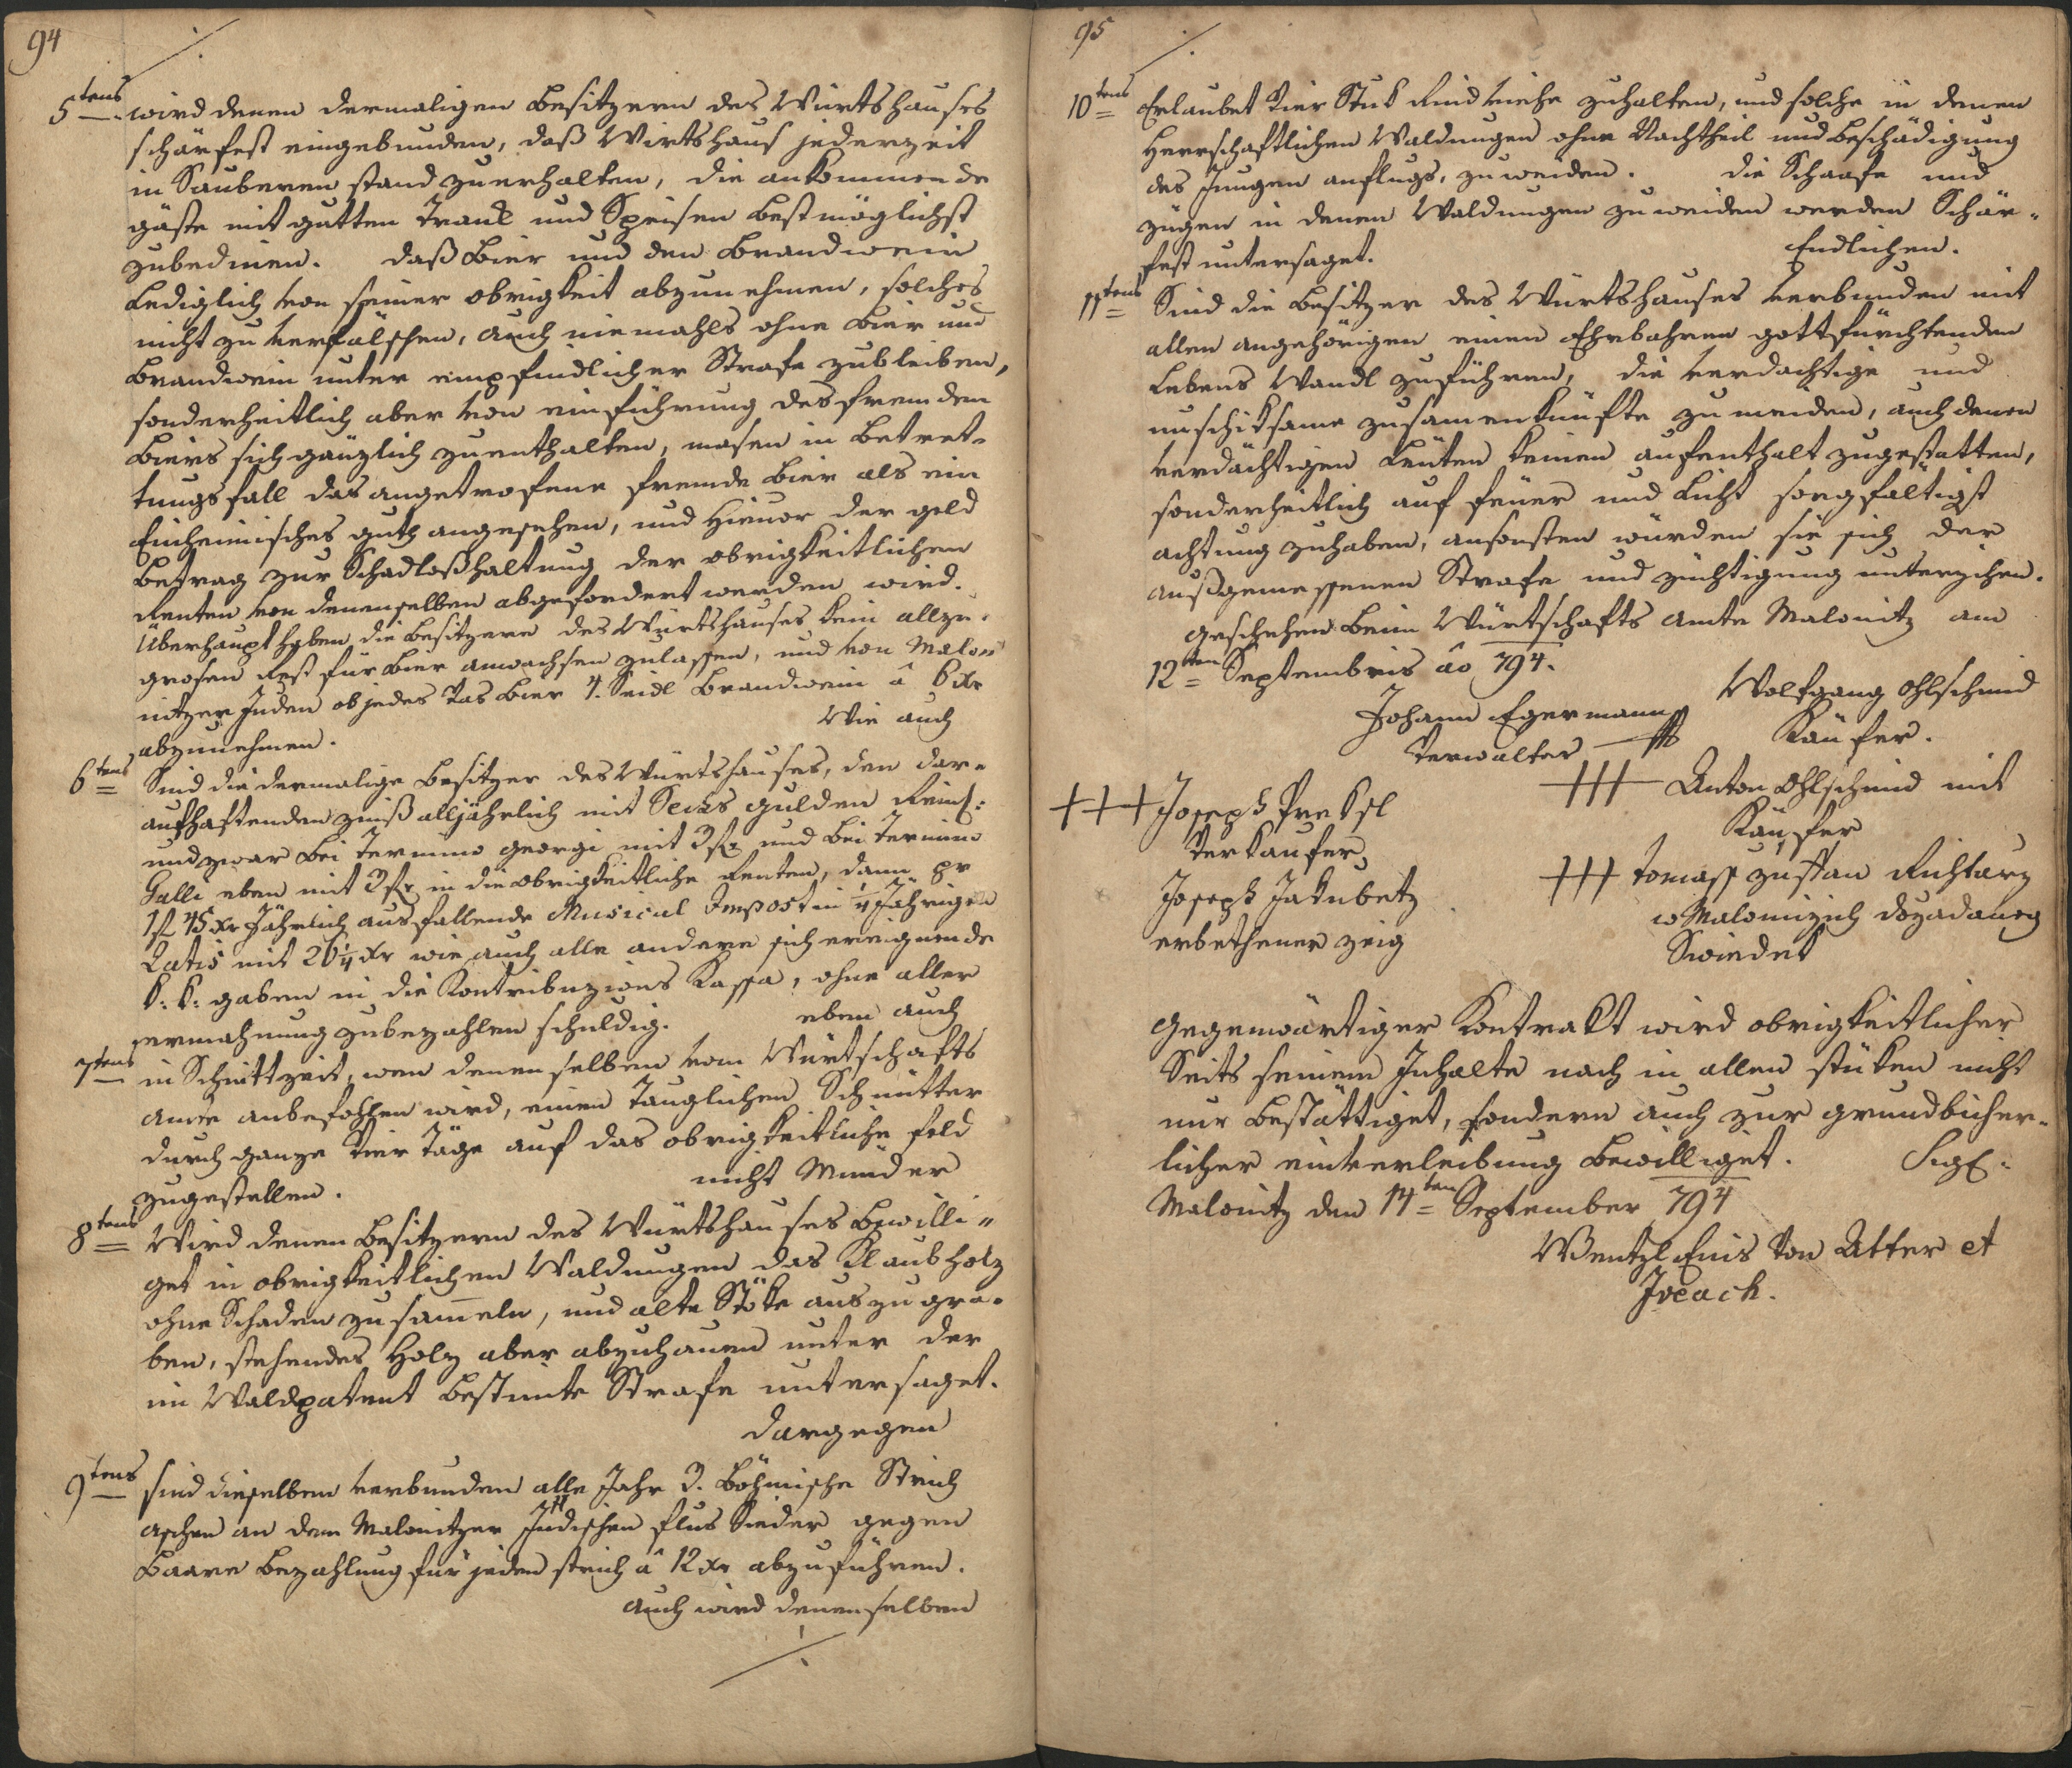 94
5tens wird denen dermaligen Besitzern des Würtshauses
schärfest eingebunden, daß Wirtshaus jederzeit
in Sauberen stand zuerhalten, die ankommende
gäste mit gutten Trank und Speisen Bestmöglichst
zubedinen. daß Bier und den Brandwein
Lediglich von seiner obrigkeit abzunehmen, solches
nicht zu verfälschen, auch niemahls ohne Bier und
Brandwein unter empfindlicher Strafe zubleiben,
sonderheitlich aber von einführung des fremden
Biers sich gänzlich zuenthalten, masen in Betret-
tungsfall das angetrofene fremde Bier als ein
Einheimisches guth angesehen, und hievor der geld
Betrag zur Schadloßhaltung der obrigkeitlichen
Renten von denenselben abgefordert werden wird.
Uberhaupt haben die Besitzere des Würtshauses kein allzu-
grosen Rest für Bier anwachsen zulassen, und von Malo-
nitzer Juden ob jedes Vas Bier 4. Seidl Brandwein â 6 xr
abzunehmen. Wie auch
6tens Sind die dermalige Besitzer des Würtshauses, den dar-
aufhaftenden zinß alljährlich mit Sechs gulden Reinl:
und zwar bei Termino georgi mit 3 f und bei Termino
Galli eben mit 3 f in die obrigkeitliche Renten, dann pr
1 f 45 xr Jährlich ausfallende Musical Impost in 1/4 Jährigen
Ratis mit 26 1/4 xr wie auch alle andere sich ereignende
k: k: gaben in die Kontribuzions Kassa, ohne aller
ermahnung zubezahlen schuldig. eben auch
7tens in Schnittzeit, wen denenselben vom Würtschafts
Amte anbefohlen wird, einen Tauglichen Schnitter
durch ganze Vier Täge auf das obrigkeitliche feld
zugestellen. nicht Minder
8tens Wird denen Besitzern des Würtshauses Bewilli-
get in obrigkeitlichen Waldungen das Klaubholz
ohne Schaden zu sam̄eln, und alte Stöke auszugra-
ben, stehendes Holz aber abzuhauen unter der
im Waldpatent Bestimte Strafe untersaget.
dargegen
9tens sind dieselben verbunden alle Jahr 3. Böhmische Strich
Aschen an dem Malonitzer Jüdischen flus Sieder gegen
Baare Bezahlung für jeden strich â 12 xr abzuführen.
auch wird denenselben
95
10tens Erlaubet Vier Stuk Rind Viehe zuhalten, und solche in denen
Herrschaftlichen Waldungen ohne Nachtheil und Beschädigung
des Jungen anflugs, zu weiden. die Schaafe und
zügen in denen Waldungen zu weiden werden Schär-
fest untersaget. Endlichen.
11tens Sind die Besitzer des Würtshauses verbunden mit
allen angehörigen einen Ehrbahren gottfürchtenden
Lebens Wandl zuführen, die verdachtige und
unschiksame zusamenkünfte zu meiden, auch denen
verdächtigen Leuten keinen aufenthalt zugestatten,
sonderheitlich auf feuer und Licht sorgfältigst
achtung zuhaben, ansonsten würden sie sich der
außgemessenen Strafe und züchtigung unterzihen.
geschehen Beim Würtschafts Amte Malonitz am
12ten Septembris âo 794.
Johann Egermann
Verwalter
Wolfgang Ohlschmid
Käufer.
+++ Joseph Preksl
Verkaufer
+++ Anton Ohlschmid mit
Käufer
Joseph Jakubetz
erbethener zeig
+++ tomass zusstan Richtarz
w Malonizich dozadaneg
Swiedek
Gegenwärtiger Kontrakt wird obrigkeitlicher
Seits seinem Inhalte nach in allen stüken nicht
nur Bestättiget, sondern auch zur grundbücher-
licher einverleibung Bewilliget. Sigl:
Malonitz den 14ten September 794
Wentzl Enis von Atter et
Iveach.